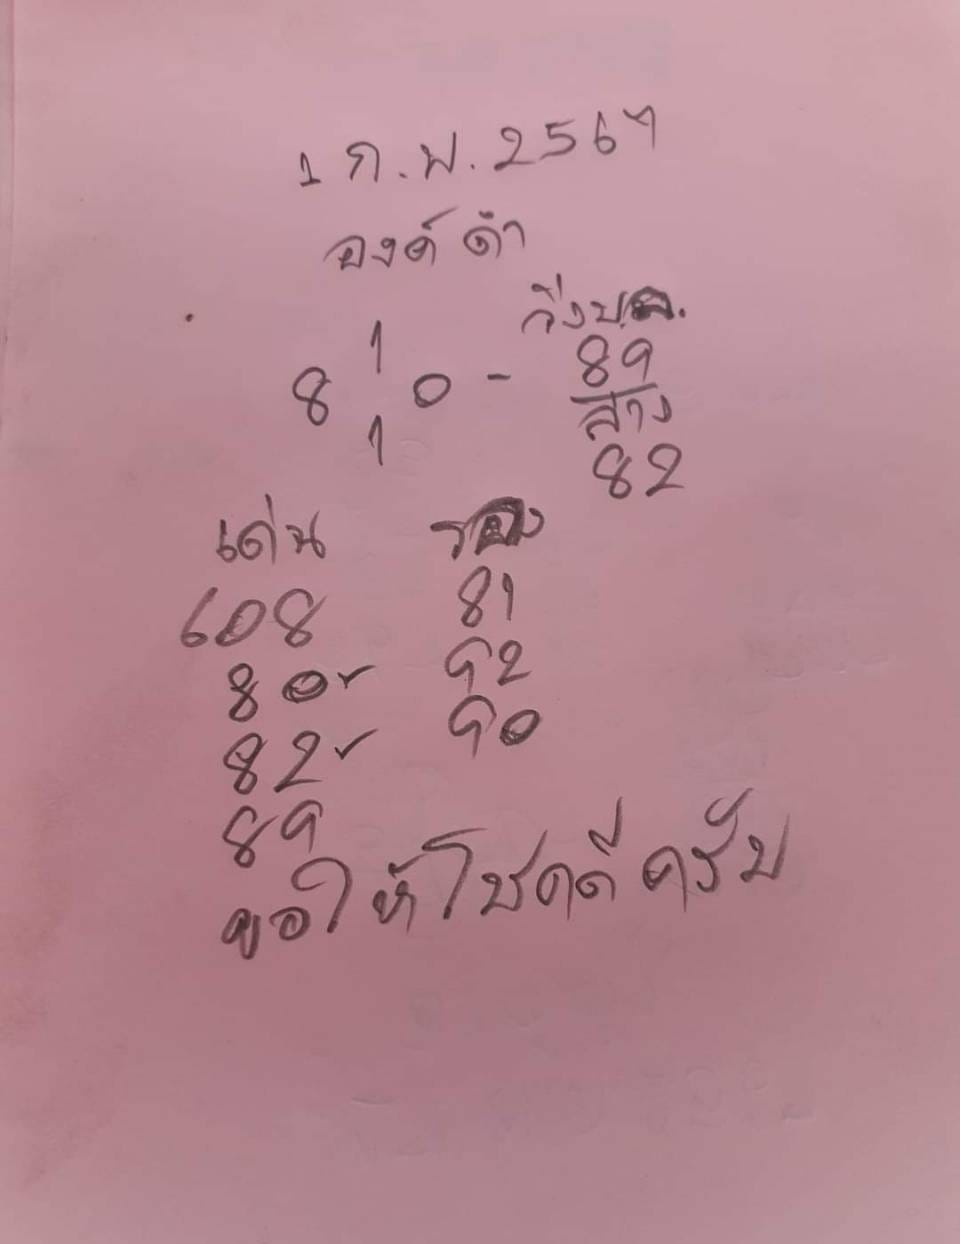 1 ก.พ. 2567
องค์ ดำ
วิ่งบ.ล.
1
8 0 - 89
1
ล่าง
82
เด่น รอง
608 81
80✓ 92
82✓ 90
89
ขอให้โชคดีครับ